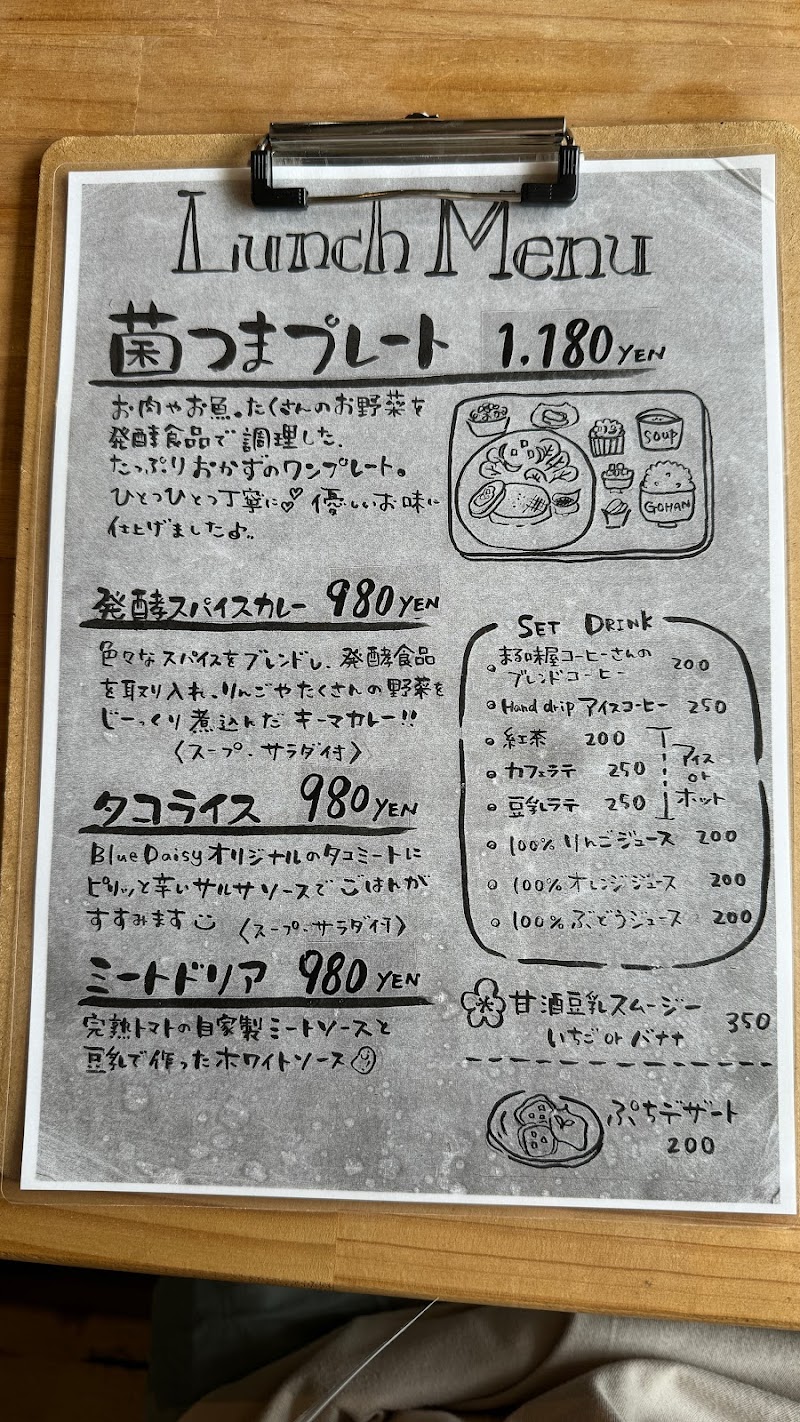 Lunch Menu
菌つまプレート 1.180 YEN
お肉やお魚。たくさんのお野菜を
発酵食品で調理した、
たっぷりおかずのワンプレート。
ひとつひとつ丁寧に♡ 優しいお味に
仕上げましたよ。
SOUP
GOHAN
発酵スパイスカレー 980 YEN
色々なスパイスをブレンドし、発酵食品
を取り入れ、りんごやたくさんの野菜を
じーっくり煮込んだ キーマカレー!!
〈スープ・サラダ付〉
タコライス 980 YEN
Blue Daisy オリジナルのタコミートに
ピリッと辛いサルサソースでごはんが
すすみます
〈スープ・サラダ付〉
ミートドリア 980 YEN
完熟トマトの自家製ミートソースと
豆乳で作ったホワイトソース
SET DRINK
まる味屋コーヒーさんの
ブレンドコーヒー 200
Hand drip アイスコーヒー 250
紅茶 200
カフェラテ 250
豆乳ラテ 250
アイス
or
ホット
100% りんごジュース 200
100% オレンジジュース 200
100% ぶどうジュース 200
甘酒豆乳スムージー
いちご or バナナ 350
ぷちデザート
200